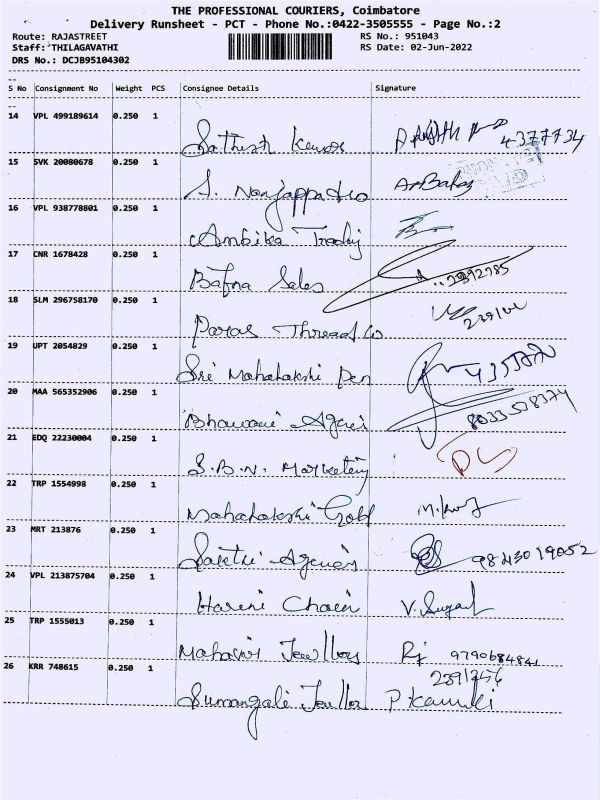 THE PROFESSIONAL COURIERS, Coimbatore
Delivery Runsheet - PCT - Phone No.:0422-3505555 - Page No.:2
Route: RAJASTREET RS No.: 951043
Staff: THILAGAVATHI RS Date: 02-Jun-2022
DRS No.: DCJB95104302
S No Consignment No Weight PCS Consignee Details Signature
14 VPL 499189614 0.250 1
Sathish Kumar 4377734
15 SVK 20080678 0.250 1
S. Nanjappa
16 VPL 938778801 0.250 1
Ambika Trading
17 CNR 1678428 0.250 1
Bafna Sales 2392785
18 SLM 296758170 0.250 1
Paras Thread Co
19 UPT 2054829 0.250 1
Sri Mahalakshi Pen
20 MAA 565352906 0.250 1
Bhawani Agencies
21 EDQ 22230004 0.250 1
S.B.N. Marketing
22 TRP 1554998 0.250 1
Mahalakshmi Gold
23 MRT 213876 0.250 1
Sakthi Agencies 9843019052
24 VPL 213875704 0.250 1
Harini Chain
25 TRP 1555013 0.250 1
Mahavir Jewellery 9790684841
26 KRR 748615 0.250 1
Sumangali Jewellers